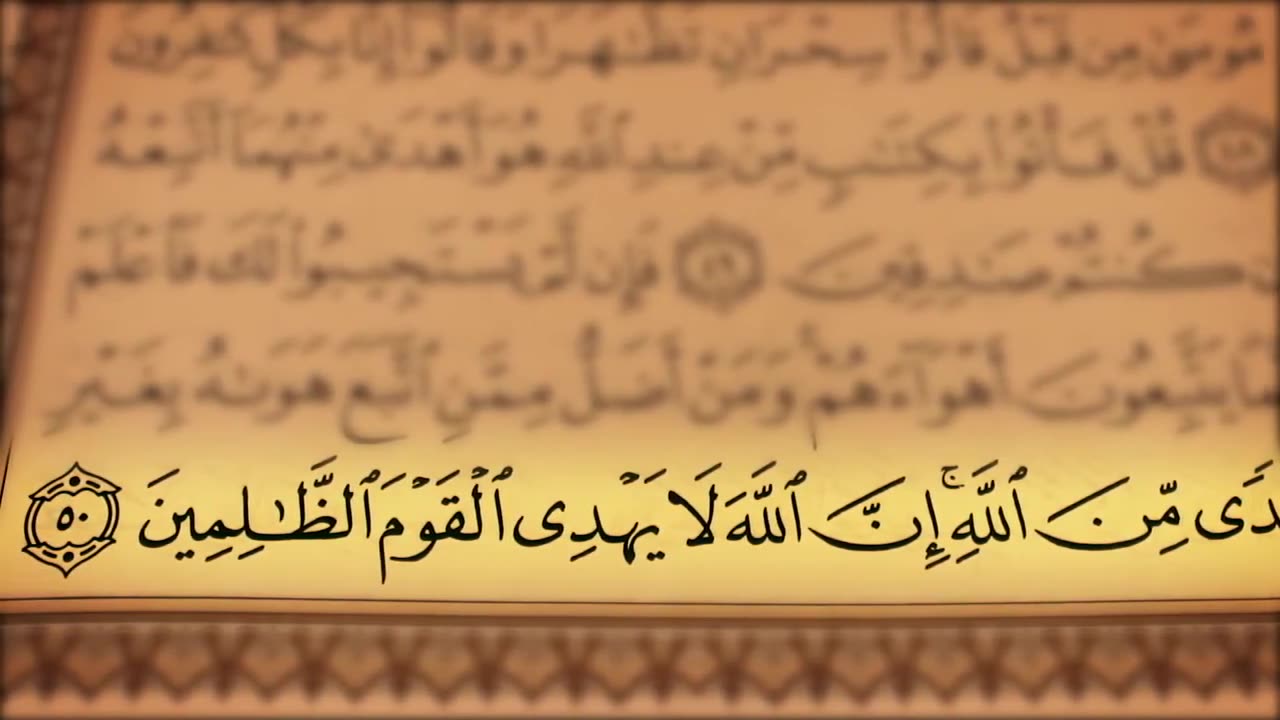 مُوسَىٰ مِن قَبْلُ قَالُوا۟ سِحْرَانِ تَظَٰهَرَا وَقَالُوٓا۟ إِنَّا بِكُلٍّ كَٰفِرُونَ
٤٨ قُلْ فَأْتُوا۟ بِكِتَٰبٍ مِّنْ عِندِ ٱللَّهِ هُوَ أَهْدَىٰ مِنْهُمَآ أَتَّبِعْهُ
كُنتُمْ صَٰدِقِينَ ٤٩ فَإِن لَّمْ يَسْتَجِيبُوا۟ لَكَ فَٱعْلَمْ
يَتَّبِعُونَ أَهْوَآءَهُمْ ۚ وَمَنْ أَضَلُّ مِمَّنِ ٱتَّبَعَ هَوَىٰهُ بِغَيْرِ
دًى مِّنَ ٱللَّهِ ۚ إِنَّ ٱللَّهَ لَا يَهْدِى ٱلْقَوْمَ ٱلظَّٰلِمِينَ ٥٠